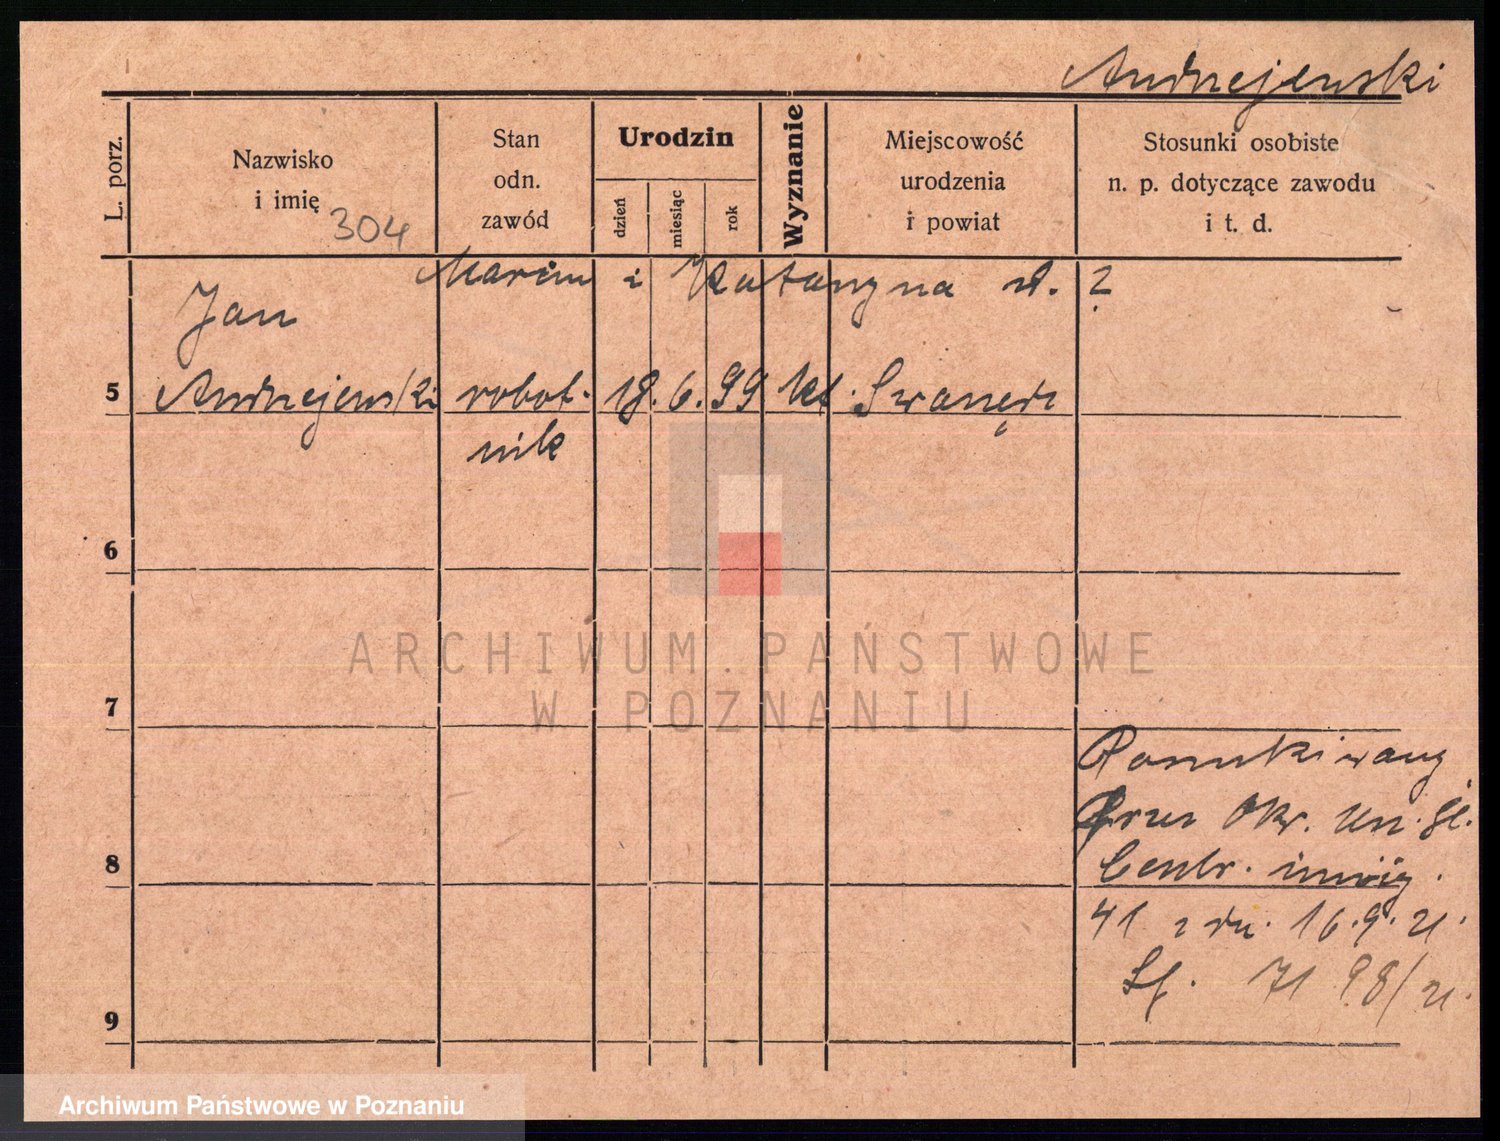 Andrzejewski
L. porz.
Nazwisko
i imię
304
Stan
odn.
zawód
Urodzin
dzień
miesiąc
rok
Wyznanie
Miejscowość
urodzenia
i powiat
Stosunki osobiste
n. p. dotyczące zawodu
i t. d.
Marcin i Katarzyna d. ?
Jan
5 Andrzejewski robot- 18. 6. 99 kt.
nik
6
7
Poszukiwany
przez Okr. Urz. Śl.
8
Centr. inwig.
41 z dn. 16.9.21.
71 98/21.
9
ARCHIWUM PAŃSTWOWE
W POZNANIU
Archiwum Państwowe w Poznaniu